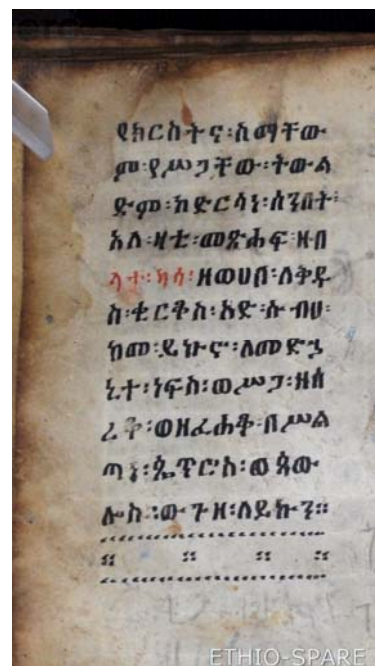 የክርስትና፡ስማቸው
ም፡የሥጋቸው፡ትውል
ድም፡ከድርሳነ፡ሰንበት፡
አለ፡ዛቲ፡መጽሐፍ፡ዘበ
ላተ፡ካሳ፡ዘወሀበ፡ለቅዱ
ስ፡ቂርቆስ፡አድ፡ሱ፡ብሀ፡
ከመ፡ይኩኖ፡ለመድኃ
ኒተ፡ነፍስ፡ወሥጋ፡ዘሰ
ረቆ፡ወዘፈሐቆ፡በሥል
ጣነ፡ጴጥሮስ፡ወጳው
ሎስ፡ውጉዘ፡ለይኩን።
ETHIO-SPARE